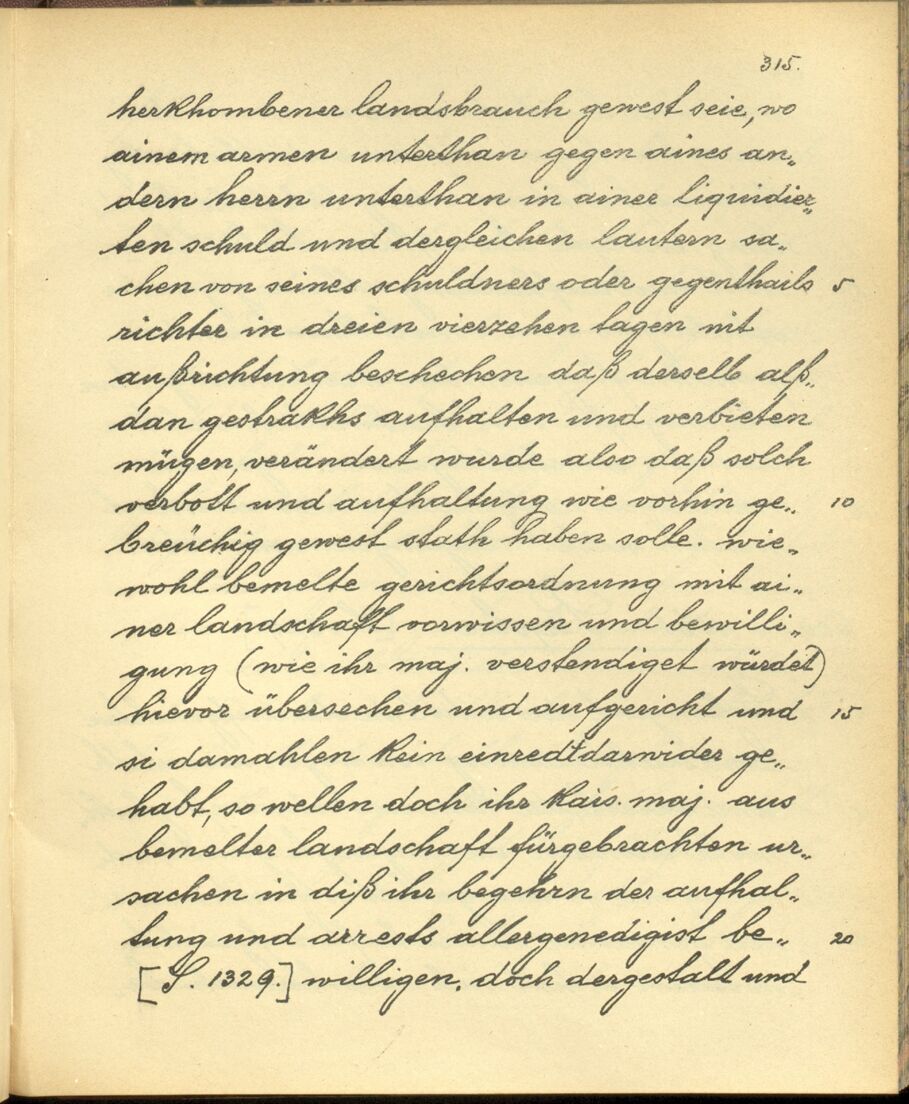 315.
herkhombener landsbrauch gewest seie, wo
ainem armen unterthan gegen aines an„
dern herrn unterthan in ainer liquidier„
ten schuld und dergleichen lautern sa„
chen von seines schuldners oder gegenthails 5
richter in dreien vierzehen tagen nit
außrichtung beschechen daß derselb alß„
dan gestrakhs aufhalten und verbieten
mügen, verändert wurde also daß solch
verbott und aufhaltung wie vorhin ge„ 10
breüchig gewest stath haben solle. wie„
wohl bemelte gerichtsordnung mit ai„
ner landschaft vorwissen und bewilli„
gung (wie ihr maj. verstendiget würdet)
hievor übersechen und aufgericht und 15
si damahlen kein einredt darwider ge„
habt, so wellen doch ihr kais. maj. aus
bemelter landschaft fürgebrachten ur„
sachen in diß ihr begehrn der aufhal„
tung und arrests allergenedigist be„ 20
[S. 1329.] willigen, doch dergestalt und